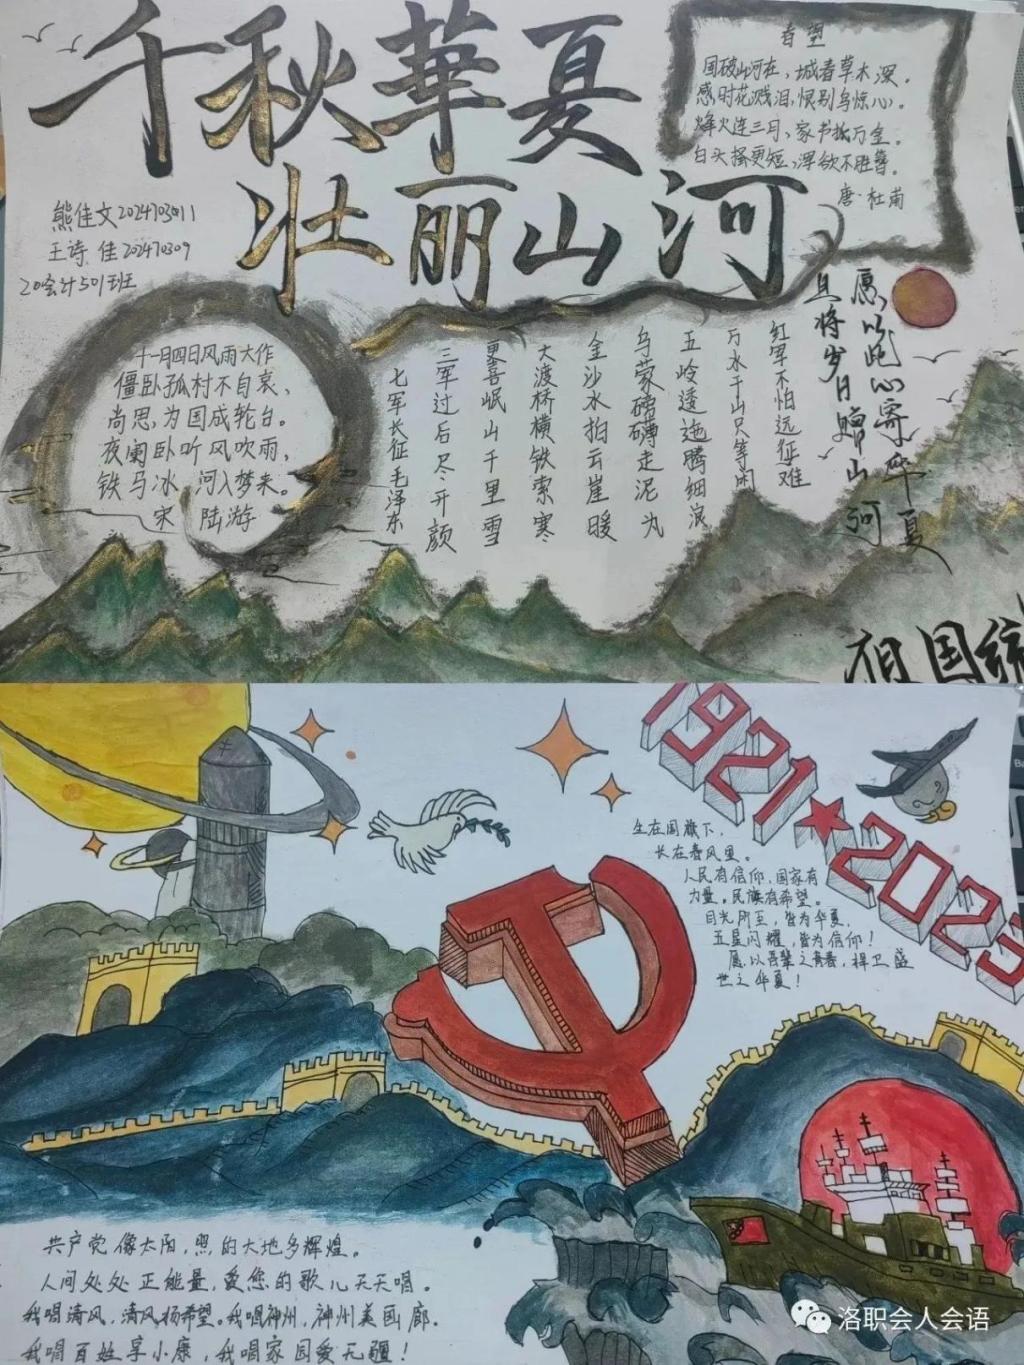 千秋華夏
壮丽山河
春望
国破山河在，城春草木深。
感时花溅泪，恨别鸟惊心。
烽火连三月，家书抵万金。
白头搔更短，浑欲不胜簪。
唐·杜甫
熊佳文
王诗佳
20会计501班
十一月四日风雨大作
僵卧孤村不自哀，
尚思，为国戍轮台。
夜阑卧听风吹雨，
铁马冰河入梦来。
宋 陆游
红军不怕远征难
万水千山只等闲
五岭逶迤腾细浪
乌蒙磅礴走泥丸
金沙水拍云崖暖
大渡桥横铁索寒
更喜岷山千里雪
三军过后尽开颜
七军长征毛泽东
愿以此心寄华夏
且将岁月赠山河
祖国统
1921★2023
生在国旗下，
长在春风里。
人民有信仰，国家有
力量。民族有希望。
目光所至，皆为华夏，
五星闪耀，皆为信仰！
愿以吾辈之青春，捍卫盛
世之华夏！
共产党像太阳，照的大地多辉煌。
人间处处正能量，爱您的歌儿天天唱。
我唱清风，清风扬希望。我唱神州，神州美画廊。
我唱百姓享小康，我唱家国爱无疆！
洛职会人会语